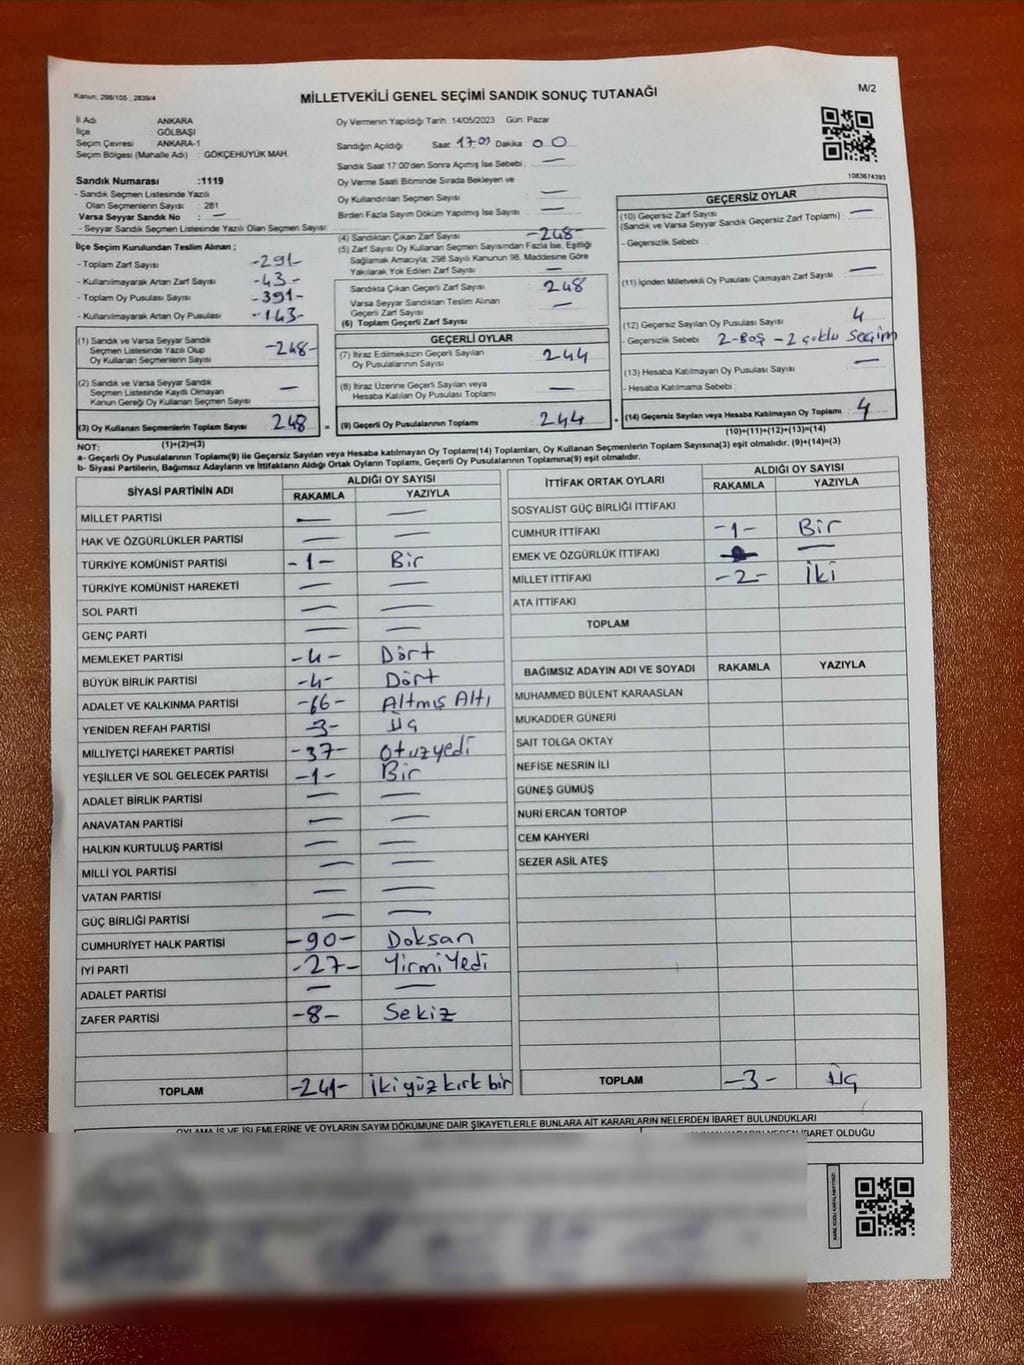 Kanun; 298/105 , 2839/4
MİLLETVEKİLİ GENEL SEÇİMİ SANDIK SONUÇ TUTANAĞI
M/2
İl Adı ANKARA
İlçe GÖLBAŞI
Seçim Çevresi ANKARA-1
Seçim Bölgesi (Mahalle Adı) : GÖKÇEHÜYÜK MAH.
Sandık Numarası :1119
- Sandık Seçmen Listesinde Yazılı
Olan Seçmenlerin Sayısı : 281
Varsa Seyyar Sandık No : —
- Seyyar Sandık Seçmen Listesinde Yazılı Olan Seçmen Sayısı:
Oy Vermenin Yapıldığı Tarih 14/05/2023 Gün Pazar
Sandığın Açıldığı Saat 17:00 Dakika 00
Sandık Saat 17:00'den Sonra Açımış İse Sebebi : —
Oy Verme Saati Bitiminde Sırada Bekleyen ve
Oy Kullandırılan Seçmen Sayısı —
Birden Fazla Sayım Döküm Yapılmış İse Sayısı —
1083874393
İlçe Seçim Kurulundan Teslim Alınan ;
- Toplam Zarf Sayısı -291-
- Kullanılmayarak Artan Zarf Sayısı -43-
- Toplam Oy Pusulası Sayısı -391-
- Kullanılmayarak Artan Oy Pusulası -143-
(1) Sandık ve Varsa Seyyar Sandık
Seçmen Listesinde Yazılı Olup
Oy Kullanan Seçmenlerin Sayısı -248-
(2) Sandık ve Varsa Seyyar Sandık
Seçmen Listesinde Kayıtlı Olmayan
Kanun Gereği Oy Kullanan Seçmen Sayısı —
(3) Oy Kullanan Seçmenlerin Toplam Sayısı 248
(1)+(2)=(3)
(4) Sandıktan Çıkan Zarf Sayısı -248-
(5) Zarf Sayısı Oy Kullanan Seçmen Sayısından Fazla İse, Eşitliği
Sağlamak Amacıyla; 298 Sayılı Kanunun 98. Maddesine Göre
Yakılarak Yok Edilen Zarf Sayısı —
Sandıkta Çıkan Geçerli Zarf Sayısı 248
Varsa Seyyar Sandıktan Teslim Alınan
Geçerli Zarf Sayısı —
(6) Toplam Geçerli Zarf Sayısı
GEÇERLİ OYLAR
(7) İtiraz Edilmeksizin Geçerli Sayılan
Oy Pusulalarının Sayısı 244
(8) İtiraz Üzerine Geçerli Sayılan veya
Hesaba Katılan Oy Pusulası Toplamı —
(9) Geçerli Oy Pusulalarının Toplamı 244
GEÇERSİZ OYLAR
(10) Geçersiz Zarf Sayısı —
(Sandık ve Varsa Seyyar Sandık Geçersiz Zarf Toplamı)
- Geçersizlik Sebebi :
(11) İçinden Milletvekili Oy Pusulası Çıkmayan Zarf Sayısı —
(12) Geçersiz Sayılan Oy Pusulası Sayısı 4
- Geçersizlik Sebebi 2-Boş - 2 çoklu seçim
(13) Hesaba Katılmayan Oy Pusulası Sayısı —
- Hesaba Katılmama Sebebi :
(14) Geçersiz Sayılan veya Hesaba Katılmayan Oy Toplamı 4
(10)+(11)+(12)+(13)=(14)
NOT:
a- Geçerli Oy Pusulalarının Toplamı(9) ile Geçersiz Sayılan veya Hesaba katılmayan Oy Toplamı(14) Toplamları, Oy Kullanan Seçmenlerin Toplam Sayısına(3) eşit olmalıdır. (9)+(14)=(3)
b- Siyasi Partilerin, Bağımsız Adayların ve İttifakların Aldığı Ortak Oyların Toplamı, Geçerli Oy Pusulalarının Toplamına(9) eşit olmalıdır.
SİYASİ PARTİNİN ADI ALDIĞI OY SAYISI
RAKAMLA YAZIYLA
MİLLET PARTİSİ — —
HAK VE ÖZGÜRLÜKLER PARTİSİ — —
TÜRKİYE KOMÜNİST PARTİSİ -1- Bir
TÜRKİYE KOMÜNİST HAREKETİ — —
SOL PARTİ — —
GENÇ PARTİ — —
MEMLEKET PARTİSİ -4- Dört
BÜYÜK BİRLİK PARTİSİ -4- Dört
ADALET VE KALKINMA PARTİSİ -66- Altmış Altı
YENİDEN REFAH PARTİSİ -3- Üç
MİLLİYETÇİ HAREKET PARTİSİ -37- Otuzyedi
YEŞİLLER VE SOL GELECEK PARTİSİ -1- Bir
ADALET BİRLİK PARTİSİ — —
ANAVATAN PARTİSİ — —
HALKIN KURTULUŞ PARTİSİ — —
MİLLİ YOL PARTİSİ — —
VATAN PARTİSİ — —
GÜÇ BİRLİĞİ PARTİSİ — —
CUMHURİYET HALK PARTİSİ -90- Doksan
İYİ PARTİ -27- YirmiYedi
ADALET PARTİSİ — —
ZAFER PARTİSİ -8- Sekiz
TOPLAM -241- İkiyüz kırk bir
İTTİFAK ORTAK OYLARI ALDIĞI OY SAYISI
RAKAMLA YAZIYLA
SOSYALİST GÜÇ BİRLİĞİ İTTİFAKI
CUMHUR İTTİFAKI -1- Bir
EMEK VE ÖZGÜRLÜK İTTİFAKI —
MİLLET İTTİFAKI -2- İki
ATA İTTİFAKI
TOPLAM
BAĞIMSIZ ADAYIN ADI VE SOYADI RAKAMLA YAZIYLA
MUHAMMED BÜLENT KARAASLAN
MUKADDER GÜNERİ
SAİT TOLGA OKTAY
NEFİSE NESRİN İLİ
GÜNEŞ GÜMÜŞ
NURİ ERCAN TORTOP
CEM KAHYERİ
SEZER ASİL ATEŞ
TOPLAM -3- Üç
OYLAMA İŞ VE İŞLEMLERİNE VE OYLARIN SAYIM DÖKÜMÜNE DAİR ŞİKAYETLERLE BUNLARA AİT KARARLARIN NELERDEN İBARET BULUNDUKLARI
İBARET OLDUĞU